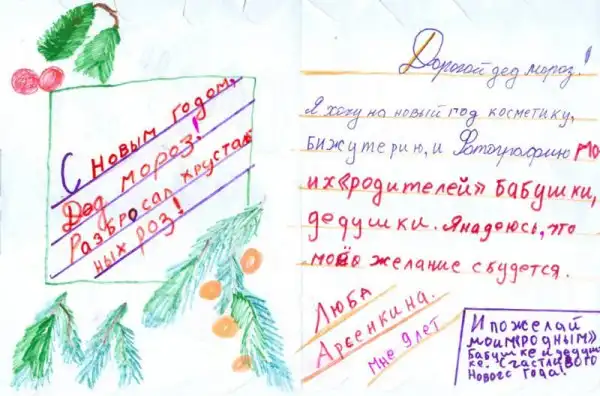 С новым годом,
Дед мороз!
Разбросал хрусталь
ных роз!
Дорогой дед мороз!
Я хочу на новый год косметику,
бижутерию, и Фотографию мо
их «родителей» бабушки,
дедушки. Я надеюсь, что
моё желание сбудется.
Люба
Арсенкина.
Мне 9 лет
И пожелай
моим «родным»
бабушке и дедуш
ке. Счастливого
Нового Года!